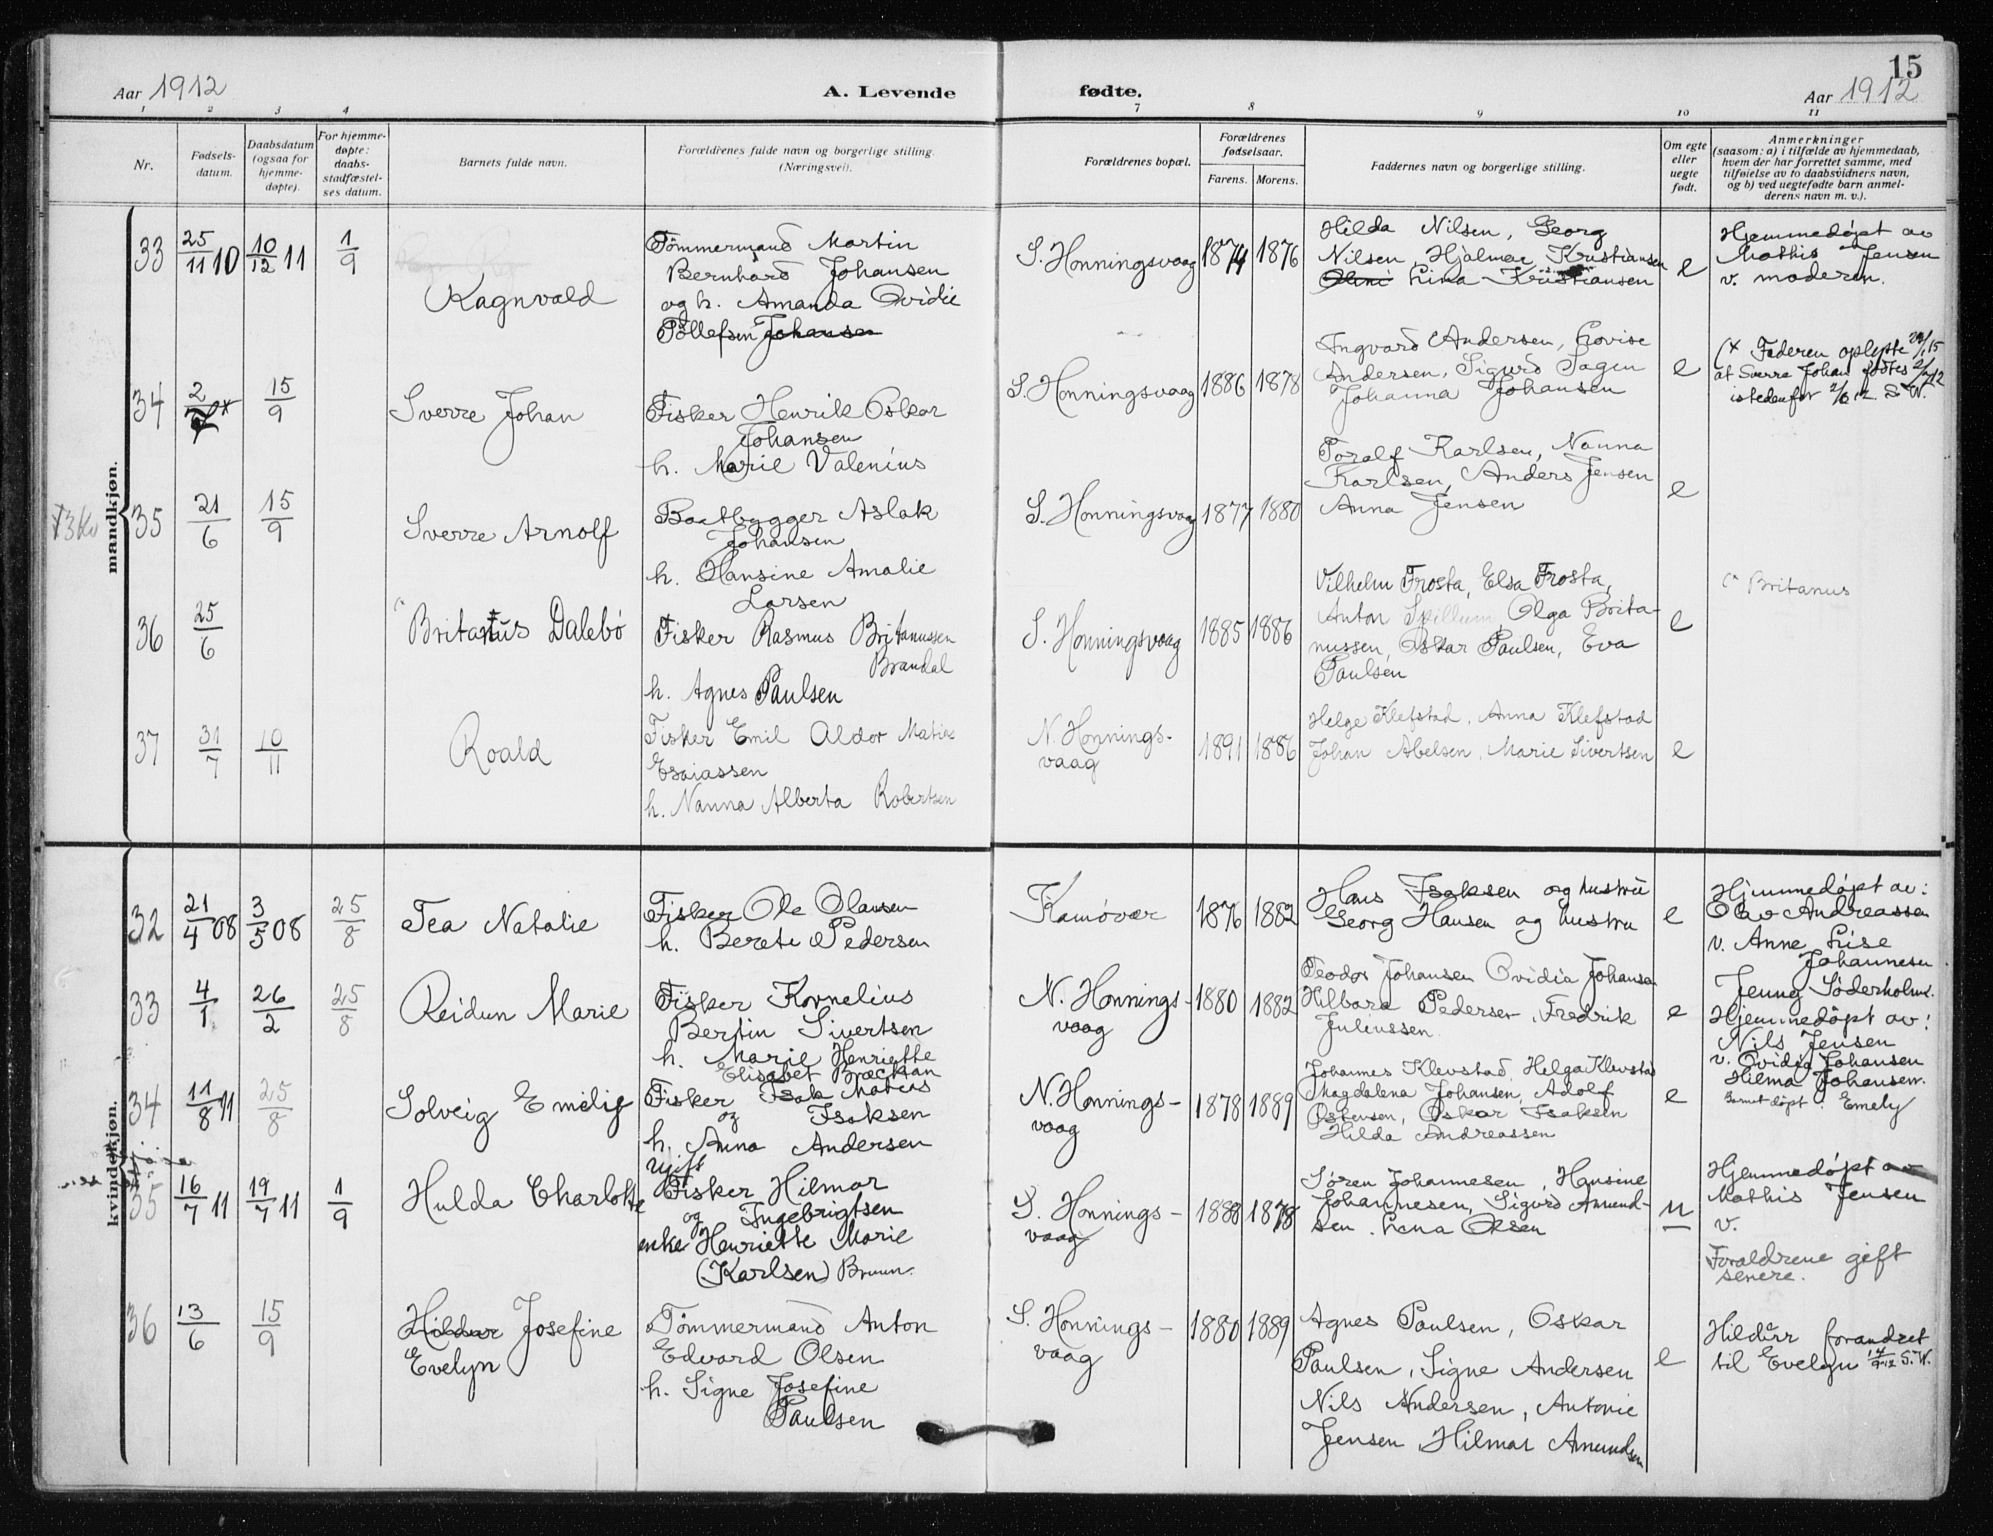 15
Aar 1912
A. Levende fødte.
Aar 1912
1 2 3 4 7 8 9 10 11
Nr.
Fødsels-
datum.
Daabsdatum
(ogsaa for
hjemme-
døpte).
For hjemme-
døpte:
daabs-
stadfæstel-
ses datum.
Barnets fulde navn.
Forældrenes fulde navn og borgerlige stilling.
(Næringsvei).
Forældrenes bopæl.
Forældrenes
fødselsaar.
Farens. Morens.
Faddernes navn og borgerlige stilling.
Om egte
eller
uegte
født.
Anmerkninger
(saasom: a) i tilfælde av hjemmedaab,
hvem der har forrettet samme, med
tilføielse av to daabsvidners navn,
og b) ved uegtefødte barn anmel-
derens navn m. v.).
mandkjøn.
33 25/11 10 10/12 11 1/9
Ragnvald
Tømmermand Martin
Bernhard Johansen
og h. Amanda Ovidie
Tollefsen Johansen
S. Honningsvaag 1874 1876
Hilda Nilsen, Georg
Nilsen, Hjalmar Kristiansen
Lina Kristiansen
e
Hjemmedøpt av
Mathis Jensen
v. moderen.
34 2/7 x 15/9
Sverre Johan
Fisker Henrik Oskar
Johansen
h. Marie Valenius
S. Honningsvaag 1886 1878
Ingvard Andersen, Lovise
Andersen, Sigurd Sagen
Johanna Johansen
e
(x Faderen oplyste
at Sverre Johan fødtes 2/7 12
istedenfor 2/6 12. S. W.
35 21/6 15/9
Sverre Arnolf
Baatbygger Aslak
Johansen
h. Hansine Amalie
Larsen
S. Honningsvaag 1877 1880
Toralf Karlsen, Nanna
Karlsen, Anders Jensen
Anna Jensen
e
36 25/6
Britanus Dalebø
Fisker Rasmus Britanussen
Brandal
h. Agnes Paulsen
S. Honningsvaag 1885 1886
Vilhelm Frosta, Elsa Frosta,
Anton Spillum, Olga Brita-
nussen, Oskar Paulsen, Eva
Paulsen
e
Britanus
37 31/7 10/11
Roald
Fisker Emil Aldor Matias
Esaiassen
h. Nanna Alberta Robertsen
N. Honnings-
vaag
1891 1886
Helge Klefstad, Anna Klefstad
Johan Abelsen, Marie Sivertsen
e
kvindekjøn.
32 21/4 08 3/5 08 25/8
Tea Natalie
Fisker Ole Olausen
h. Berete Pedersen
Kamøvær 1876 1882
Hans Isaksen og hustru
Georg Hansen og hustru
e
Hjemmedøpt av:
Olav Andreassen
v. Anne Lise
Johannesen
Jenny Söderholm.
33 4/1 26/2 25/8
Reidun Marie
Fisker Kornelius
Bertin Sivertsen
h. Marie Henriette
Elisabet Bræckan
N. Honnings-
vaag
1880 1882
Teodor Johansen Ovidia Johansen
Hilbara Pedersen, Fredrik
Juliussen
e
Hjemmedøpt av:
Nils Jensen
v. Ovidia Johansen
Hilma Johansen.
34 11/8 11 25/8
Solveig Emelie
Fisker Isak Matias
og Isaksen
h. Anna Andersen
N. Honnings-
vaag
1878 1889
Johannes Klevstad, Helga Klevstad
Magdalena Johansen, Adolf
Ostensen, Oskar Isaksen
Hilda Andreassen
e
Barnet døpt: Emely
35 16/7 11 19/7 11 1/9
Hulda Charlotte
Ugift
Fisker Hilmar
og Ingebrigtsen
enke Henriette Marie
(Karlsen) Bruun.
S. Honnings-
vaag
1888 1878
Søren Johannesen, Hansine
Johannesen, Sigurd Amund-
sen. Lena Olsen
u
Hjemmedøpt av
Mathis Jensen
v.
Foraldrene gift
senere.
36 13/6 15/9
Hildur Josefine
Evelyn
Tømmermand Anton
Edvard Olsen
h. Signe Josefine
Paulsen
S. Honnings-
vaag
1880 1889
Agnes Paulsen, Oskar
Paulsen, Signe Andersen
Nils Andersen, Antonie
Jensen, Hilmar Amundsen
e
Hildur forandret
til Evelyn 14/9 12 S. W.